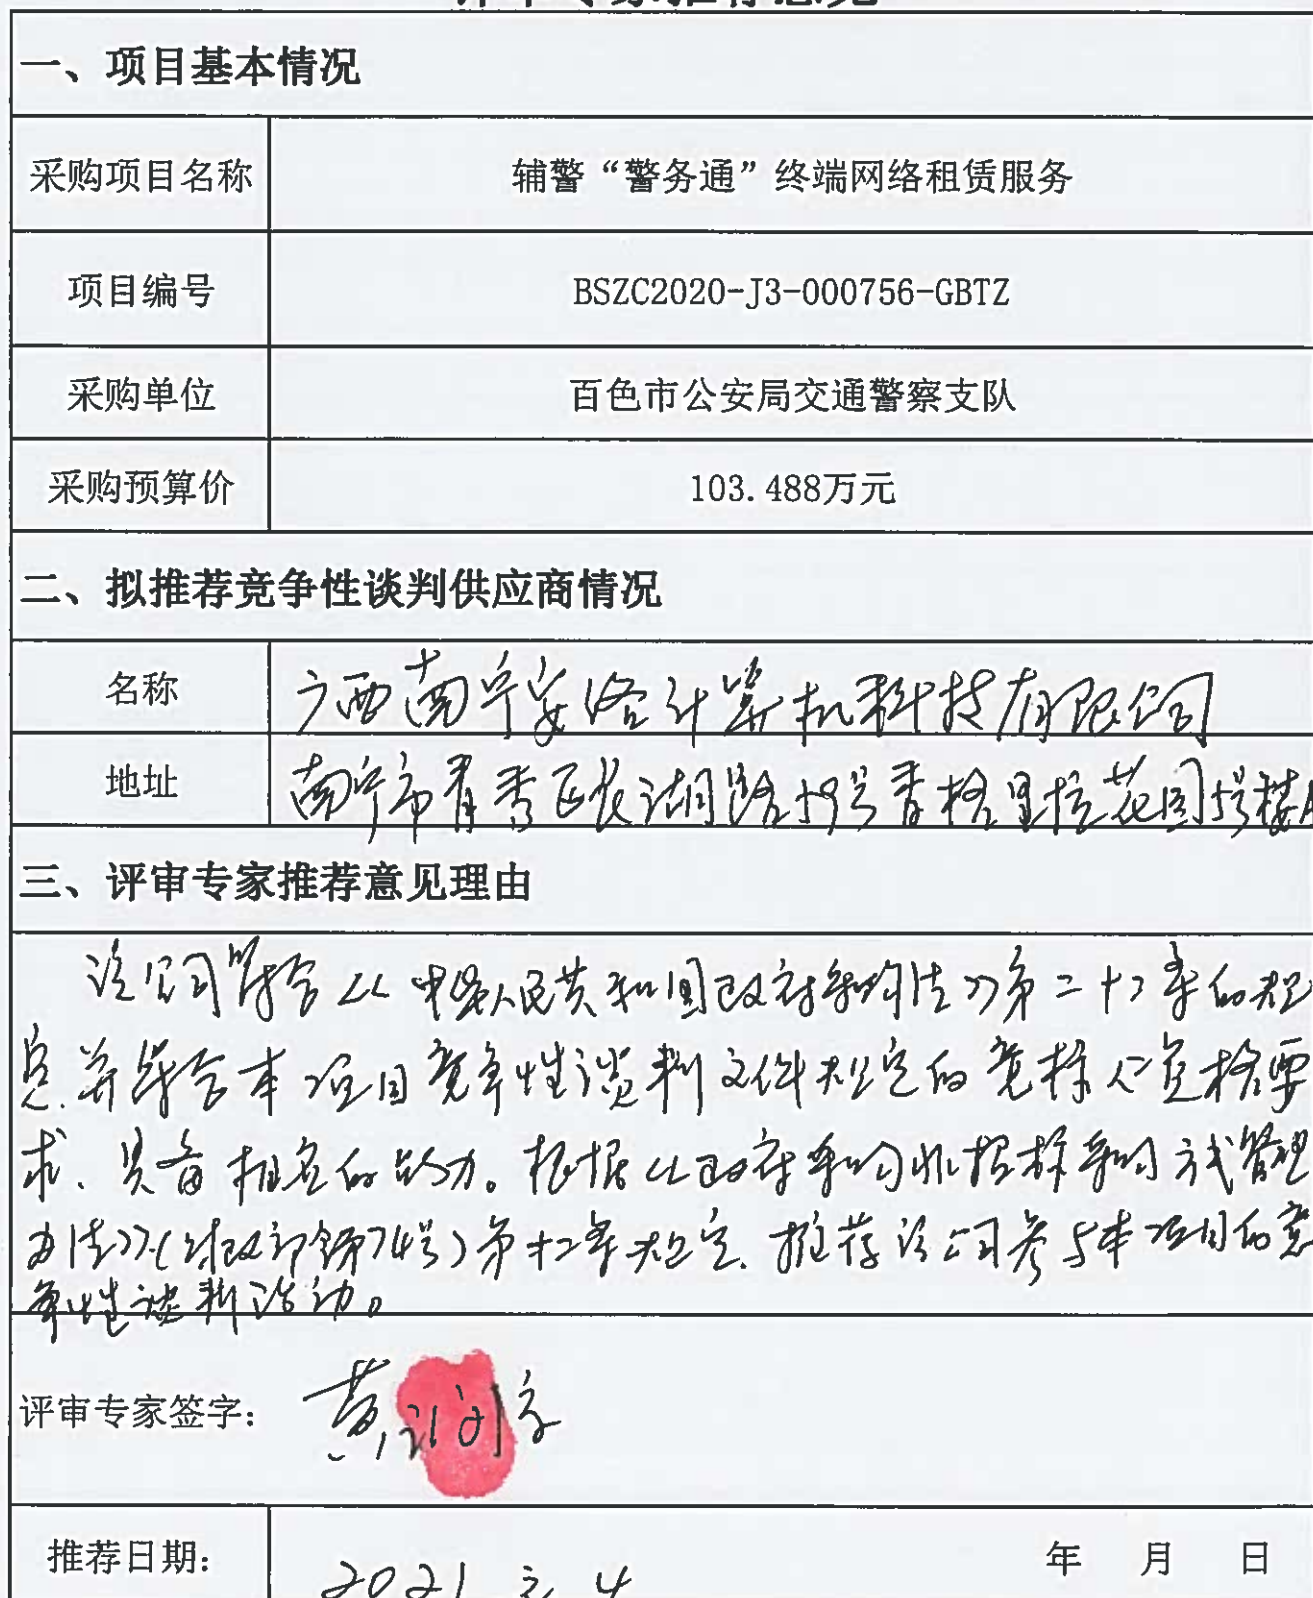 评审专家推荐意见
一、项目基本情况
采购项目名称 辅警“警务通”终端网络租赁服务
项目编号 BSZC2020-J3-000756-GBTZ
采购单位 百色市公安局交通警察支队
采购预算价 103.488万元
二、拟推荐竞争性谈判供应商情况
名称 广西南宁安络计算机科技有限公司
地址 南宁市青秀区长湖路59号香格里拉花园5号楼
三、评审专家推荐意见理由
该公司符合《中华人民共和国政府采购法》第二十二条的规
定,并符合本项目竞争性谈判文件规定的竞标人资格要
求、具备相应的能力。根据《政府采购非招标采购方式管理
办法》(财政部令第74号)第十二条规定,推荐该公司参与本项目的竞
争性谈判活动。
评审专家签字: 黄
推荐日期: 年 月 日
2021 2 4